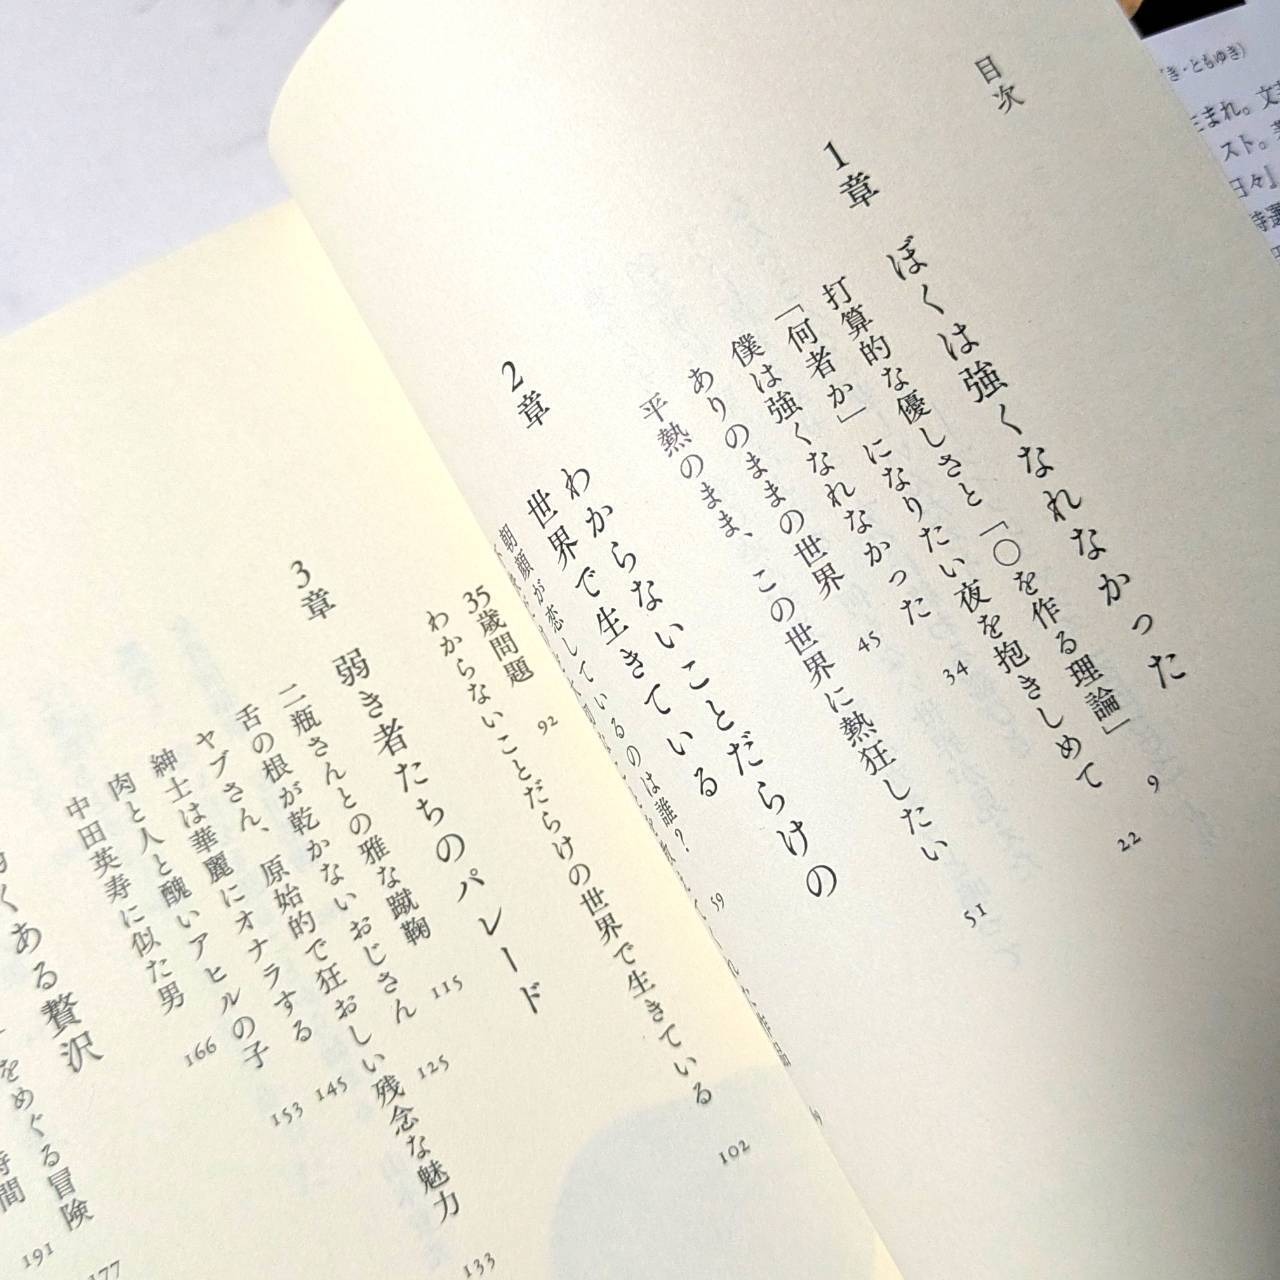 目次
1章 ぼくは強くなれなかった
打算的な優しさと「〇を作る理論」 9
「何者か」になりたい夜を抱きしめて 22
僕は強くなれなかった 34
ありのままの世界 45
平熱のまま、この世界に熱狂したい 51
2章 わからないことだらけの
世界で生きている
朝顔が恋しているのは誰? 59
35歳問題 92
わからないことだらけの世界で生きている 102
3章 弱き者たちのパレード
二瓶さんとの雅な蹴鞠 115
舌の根が乾かないおじさん 125
ヤブさん、原始的で狂おしい残念な魅力 133
紳士は華麗にオナラする 145
肉と人と醜いアヒルの子 153
中田英寿に似た男 166
くある贅沢
をめぐる冒険 177
時間 191
き・ともゆき)
まれ。文
スト。
日々』